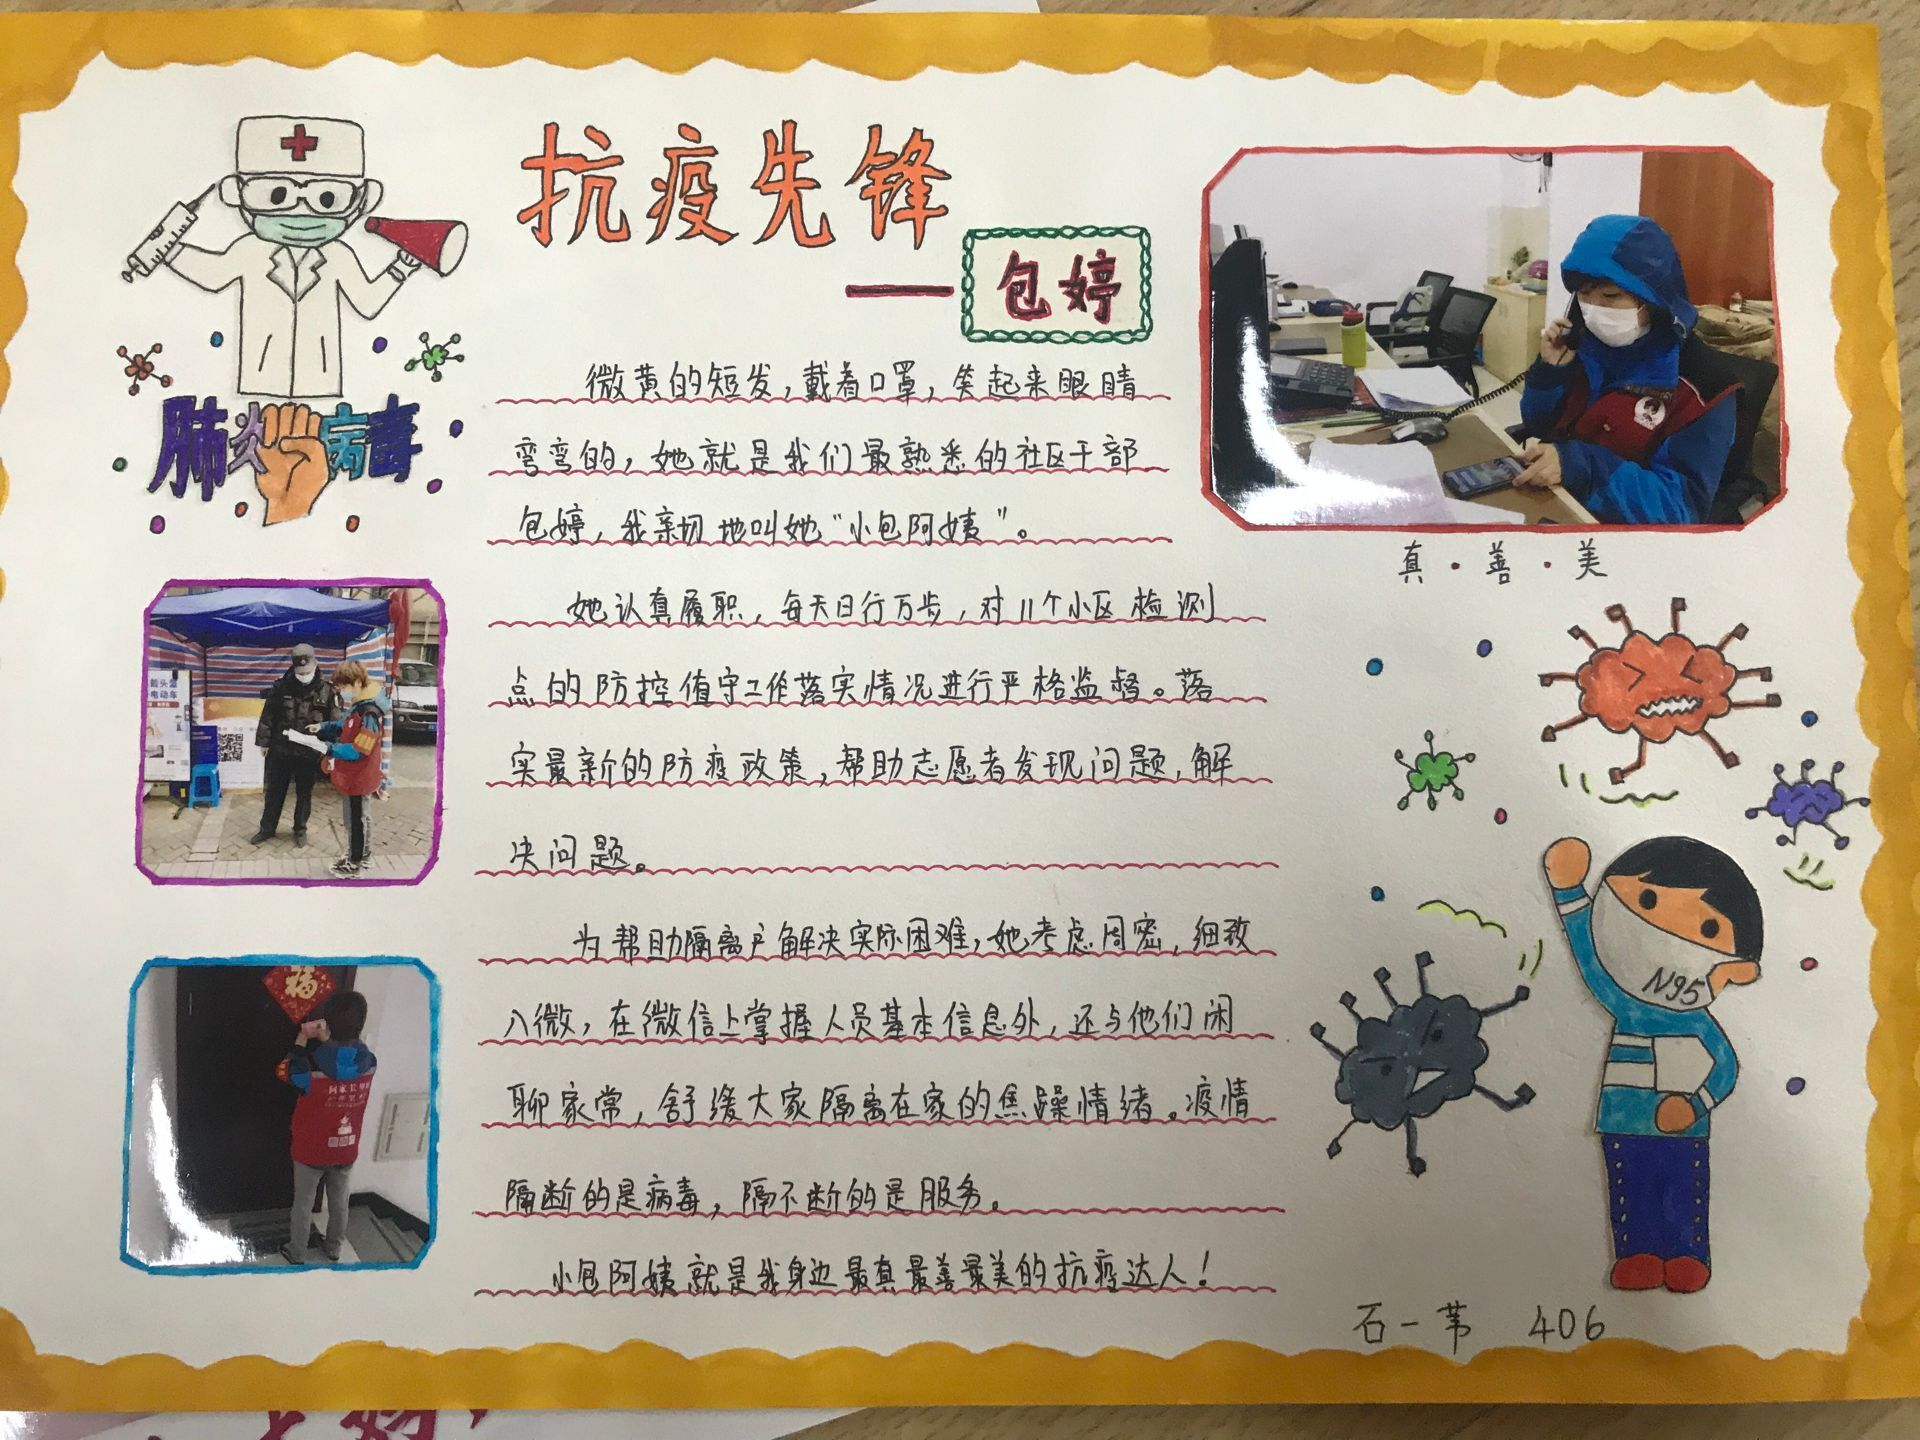 抗疫先锋
——包婷
肺炎病毒
微黄的短发，戴着口罩，笑起来眼睛
弯弯的，她就是我们最熟悉的社区干部
包婷，我亲切地叫她“小包阿姨”。
她认真履职，每天日行万步，对11个小区检测
点的防控值守工作落实情况进行严格监督。落
实最新的防疫政策，帮助志愿者发现问题，解
决问题。
为帮助隔离户解决实际困难，她考虑周密，细致
入微，在微信上掌握人员基本信息外，还与他们闲
聊家常，舒缓大家隔离在家的焦躁情绪。疫情
隔断的是病毒，隔不断的是服务。
小包阿姨就是我身边最真最善最美的抗疫达人！
真·善·美
N95
电动车
福
石一苇 406